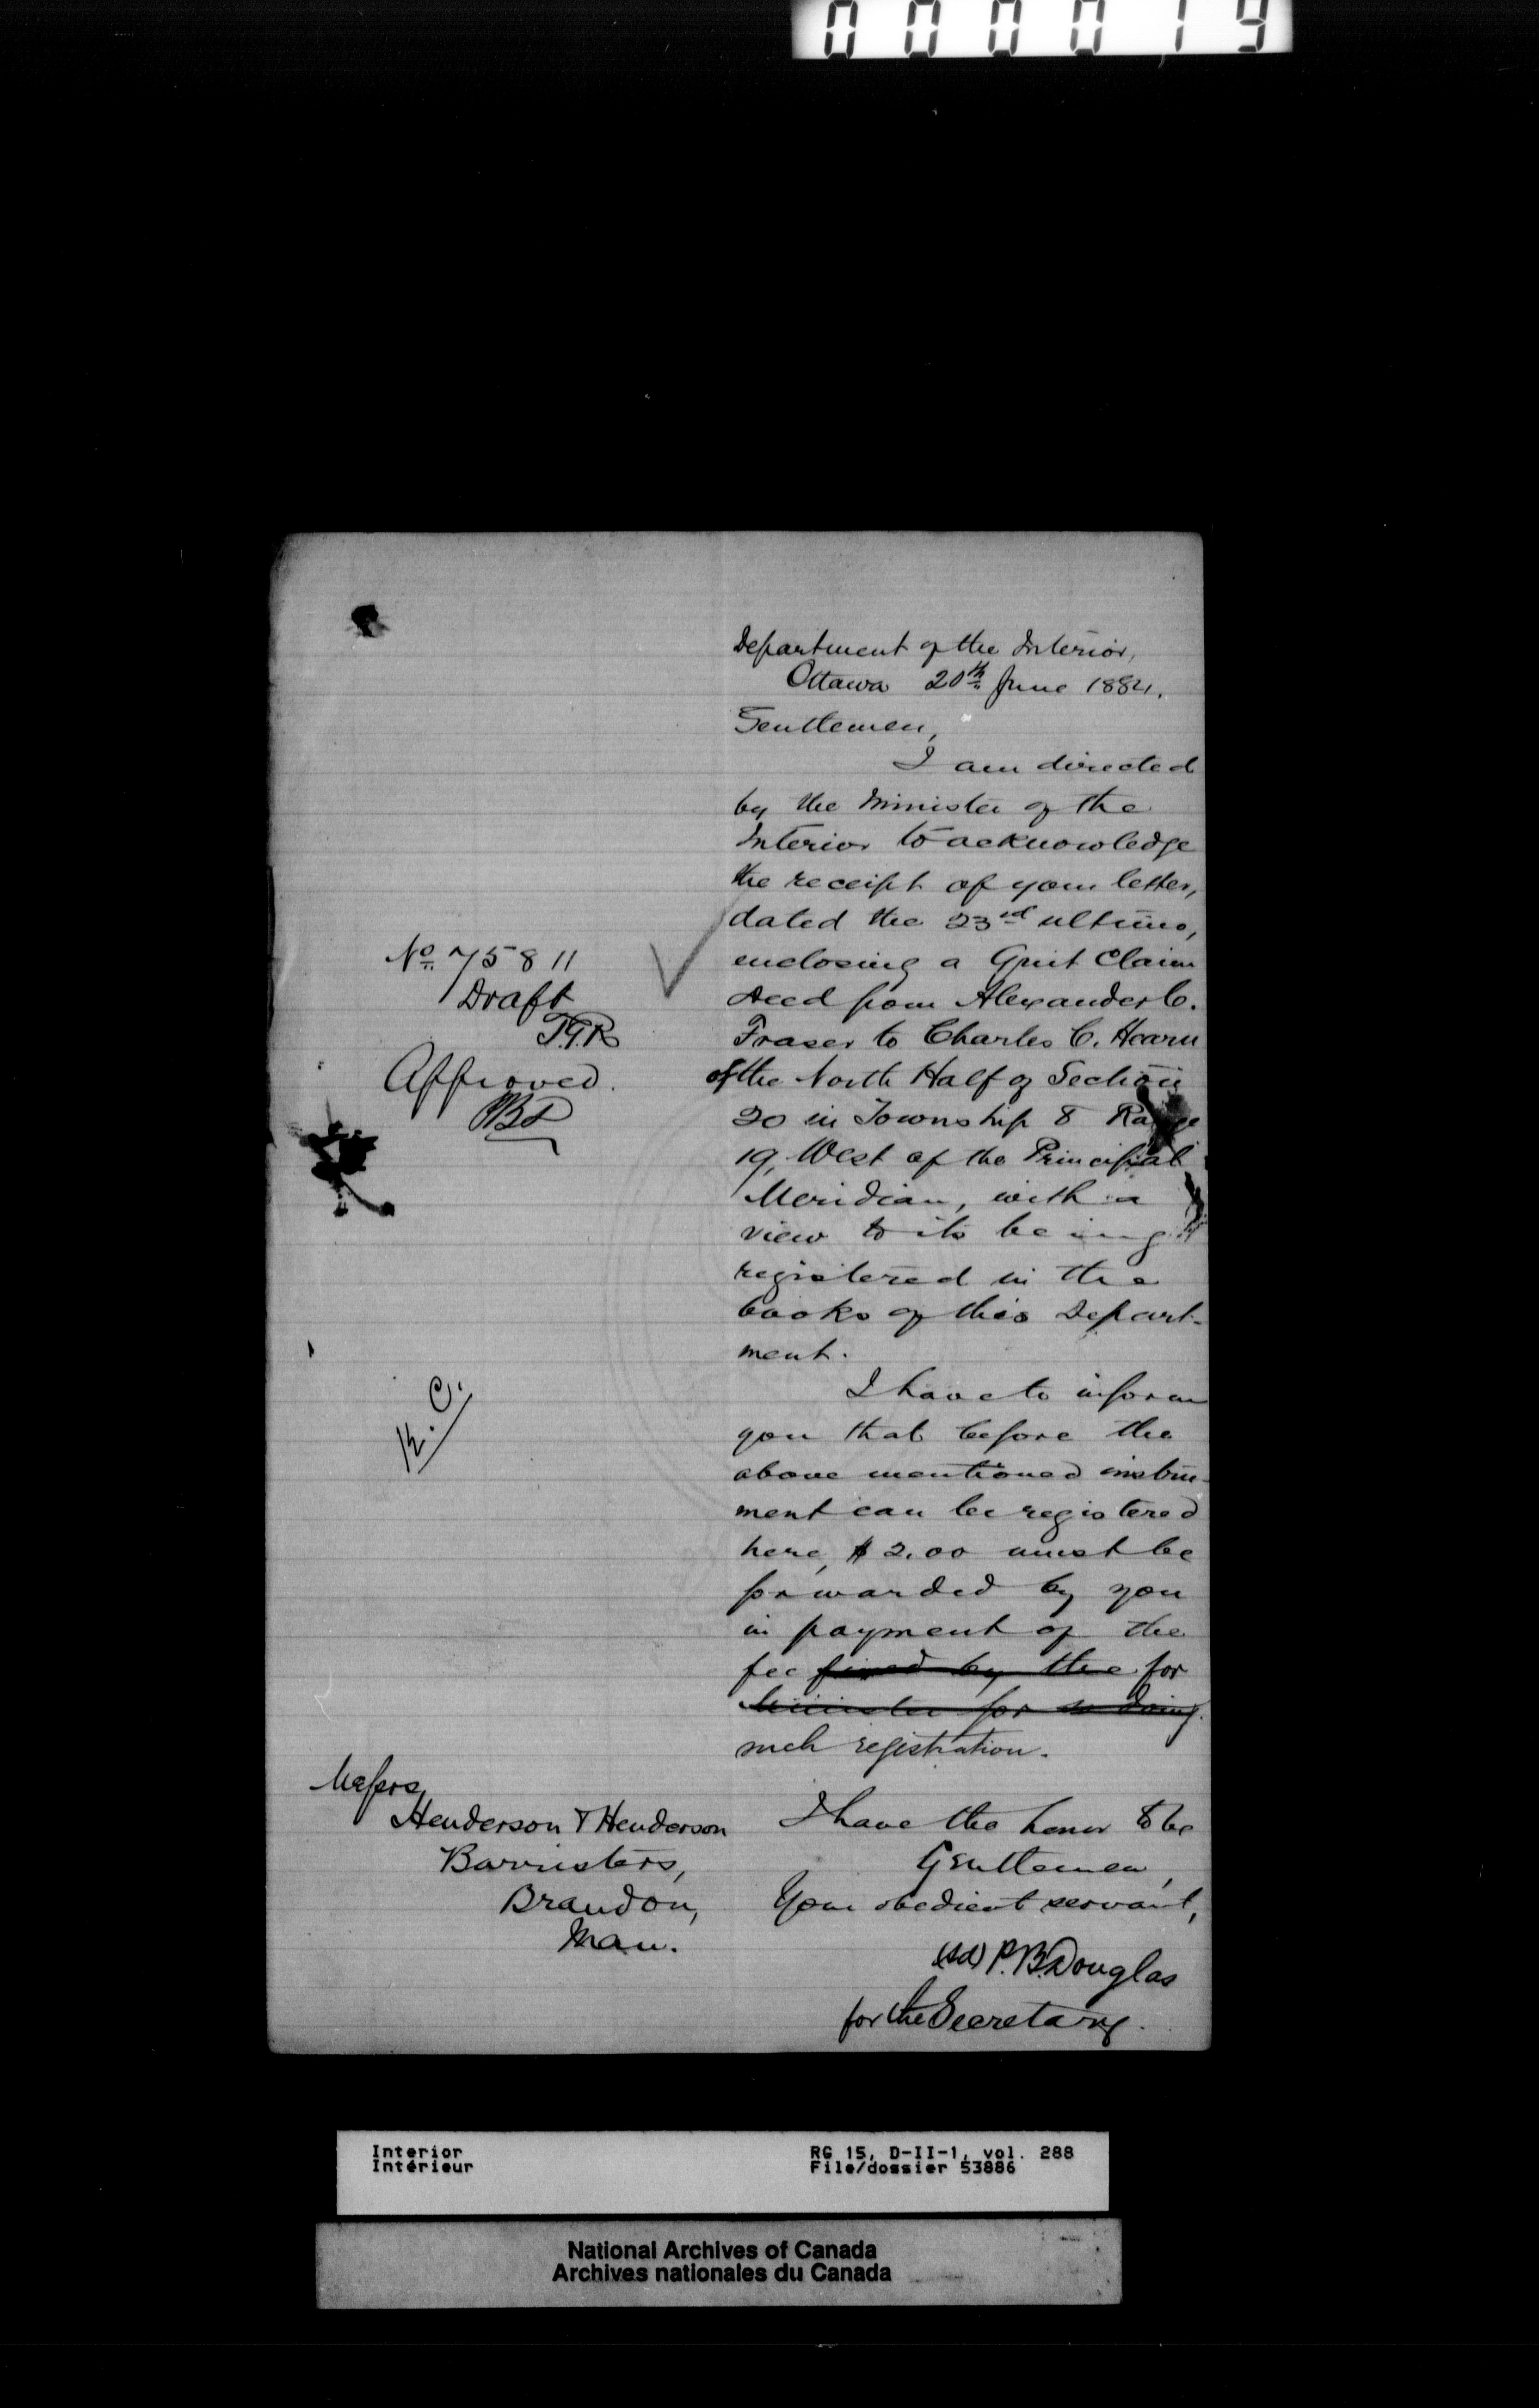 000019
Department of the Interior,
Ottawa 20th June 1884.
Gentlemen,
I am directed
by the Minister of the
Interior to acknowledge
the receipt of your letter,
dated the 23rd ultimo,
enclosing a Quit Claim
Deed from Alexander C.
Fraser to Charles C. Hearn
of the North Half of Section
20 in Township 8 Range
19, West of the Principal
Meridian, with a
view to its being
registered in the
books of this Depart-
ment.
I have to inform
you that before the
above mentioned instru-
ment can be registered
here, $2.00 must be
forwarded by you
in payment of the
fee fixed by the for
Minister for so doing.
such registration.
I have the honor to be
Gentlemen,
Your obedient servant,
(sd) P. B. Douglas
for the Secretary.
No. 75811
Draft
T.G.R
Approved.
PBD
K.C.
Messrs
Henderson & Henderson
Barristers,
Brandon,
Man.
Interior
Intérieur
RG 15, D-II-1, vol. 288
File/dossier 53886
National Archives of Canada
Archives nationales du Canada